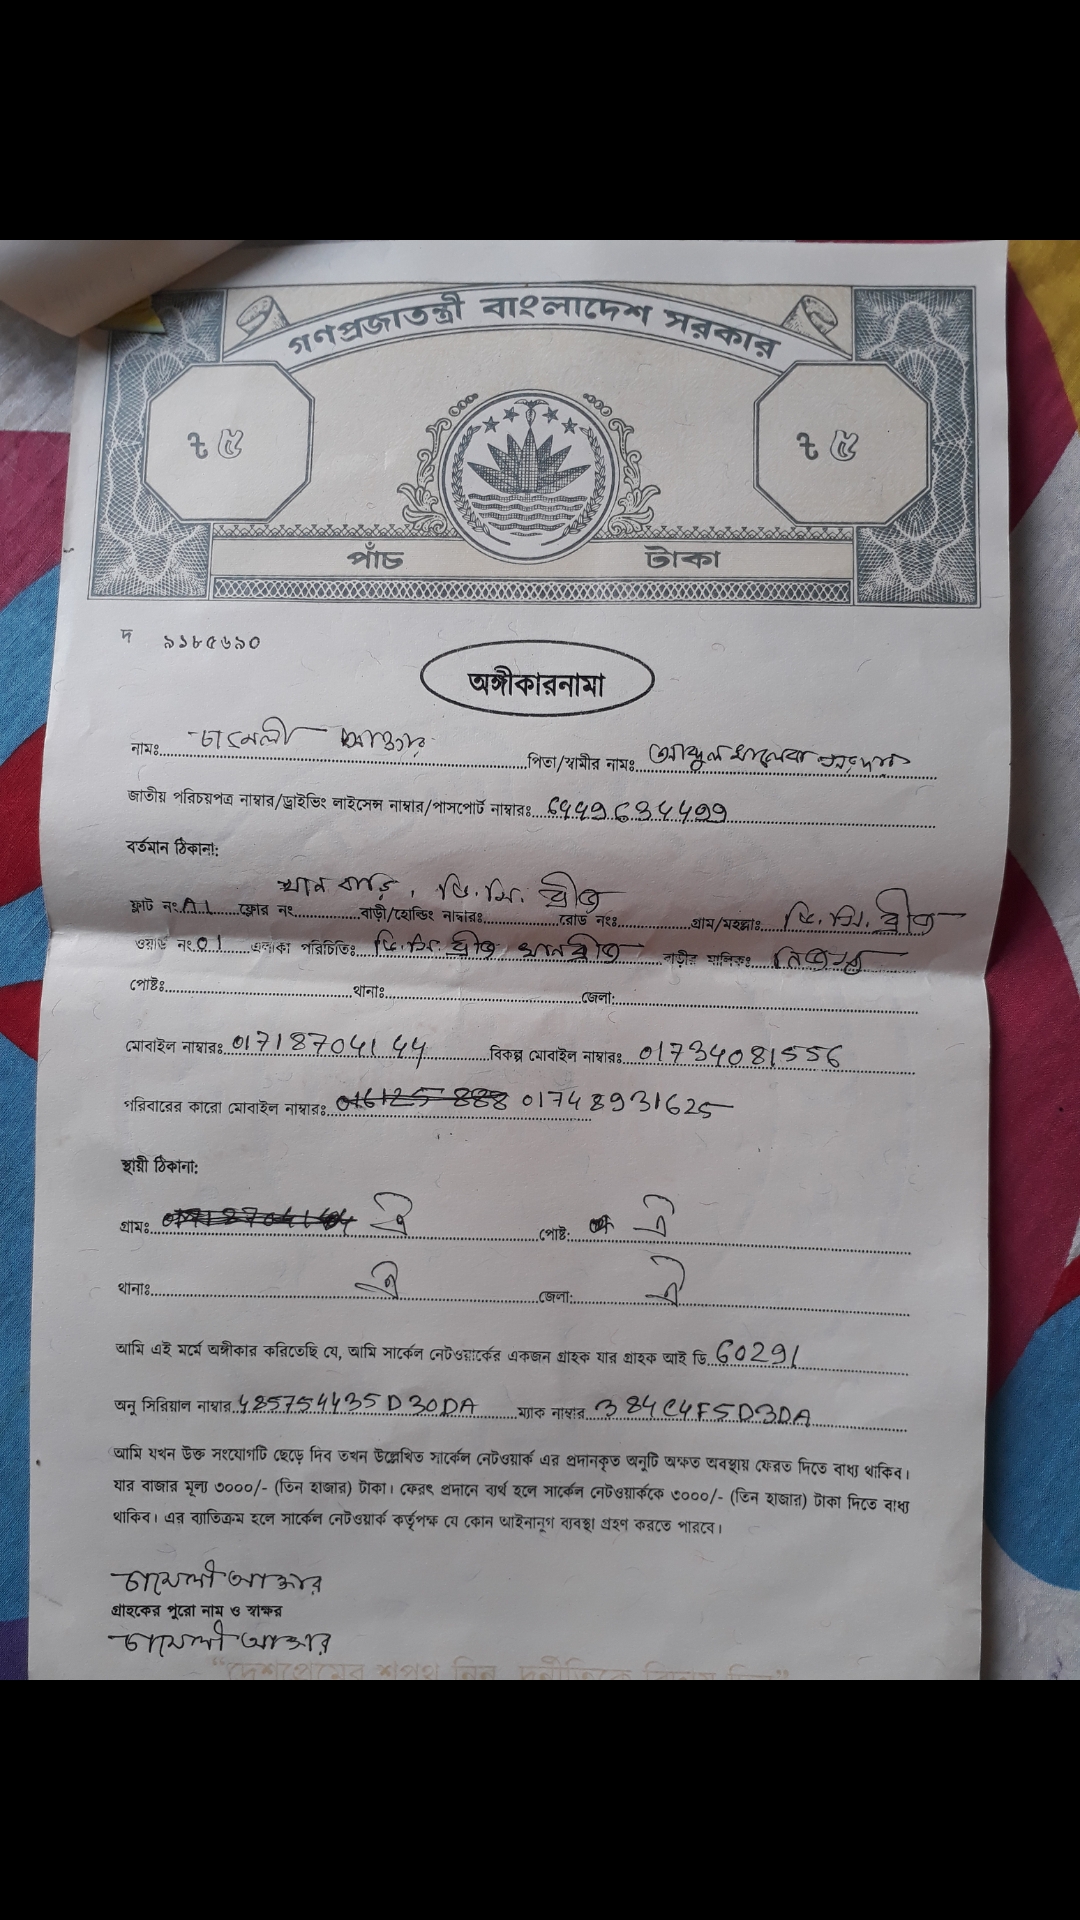 গণপ্রজাতন্ত্রী বাংলাদেশ সরকার
৳ ৫ ৳ ৫
পাঁচ টাকা
দ ৯১৮৫৬৯০
অঙ্গীকারনামা
নামঃ চামেলী আক্তার পিতা/স্বামীর নামঃ আব্দুল খালেক
জাতীয় পরিচয়পত্র নাম্বার/ড্রাইভিং লাইসেন্স নাম্বার/পাসপোর্ট নাম্বারঃ
বর্তমান ঠিকানা:
খান বাড়ি, ডি.সি. ব্রীজ
ফ্লাট নং A1 ফ্লোর নং বাড়ী/হোল্ডিং নাম্বারঃ রোড নংঃ গ্রাম/মহল্লাঃ ডি.সি. ব্রীজ
ওয়ার্ড নং 01 এলাকা পরিচিতিঃ ডি.সি. ব্রীজ খান ব্রীজ বাড়ীর মালিকঃ
পোষ্টঃ থানাঃ জেলা:
মোবাইল নাম্বারঃ 01718704144 বিকল্প মোবাইল নাম্বারঃ 01734081556
পরিবারের কারো মোবাইল নাম্বারঃ 01748931625
স্থায়ী ঠিকানা:
গ্রামঃ ঐ পোষ্ট: ঐ
থানাঃ ঐ জেলা: ঐ
আমি এই মর্মে অঙ্গীকার করিতেছি যে, আমি সার্কেল নেটওয়ার্কের একজন গ্রাহক যার গ্রাহক আই ডি 60291
অনু সিরিয়াল নাম্বার 485754435D30DA ম্যাক নাম্বার 384C4F5D3DA
আমি যখন উক্ত সংযোগটি ছেড়ে দিব তখন উল্লেখিত সার্কেল নেটওয়ার্ক এর প্রদানকৃত অনুটি অক্ষত অবস্থায় ফেরত দিতে বাধ্য থাকিব।
যার বাজার মূল্য ৩০০০/- (তিন হাজার) টাকা। ফেরৎ প্রদানে ব্যর্থ হলে সার্কেল নেটওয়ার্ককে ৩০০০/- (তিন হাজার) টাকা দিতে বাধ্য
থাকিব। এর ব্যতিক্রম হলে সার্কেল নেটওয়ার্ক কর্তৃপক্ষ যে কোন আইনানুগ ব্যবস্থা গ্রহণ করতে পারবে।
চামেলী আক্তার
গ্রাহকের পুরো নাম ও স্বাক্ষর
চামেলী আক্তার
“দেশপ্রেমের শপথ নিন, দুর্নীতিকে বিদায় দিন”